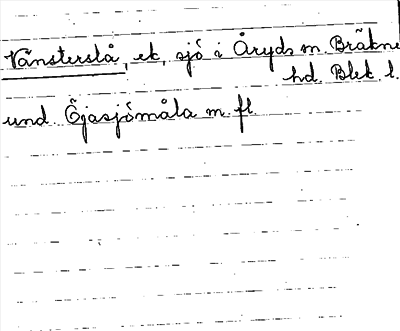 Vänsterslå, ek, sjö i Åryds sn. Bräkne
hd. Blek. l.
und. Öjasjömåla m. fl.